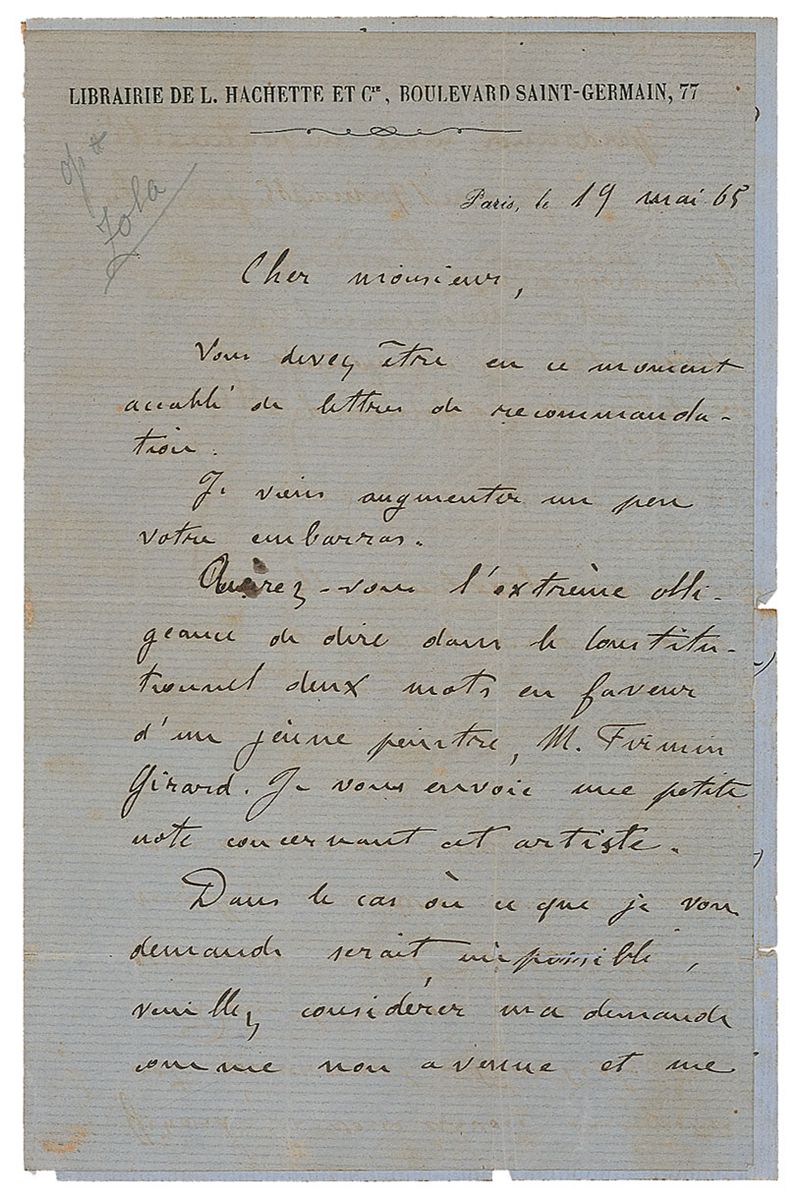 LIBRAIRIE DE L. HACHETTE ET Cie, BOULEVARD SAINT-GERMAIN, 77
Zola
Paris, le 19 mai 65
Cher monsieur,
Vous devez être en ce moment
accablé de lettres de recommanda-
tion.
Je viens augmenter un peu
votre embarras.
Aurez-vous l'extrème obli-
geance de dire dans le Constitu-
tionnel deux mots en faveur
d'un jeune peintre, M. Firmin
Girard. Je vous envoie une petite
note concernant cet artiste.
Dans le cas où ce que je vous
demande serait impossible,
veuillez considérer ma demande
comme non avenue et me